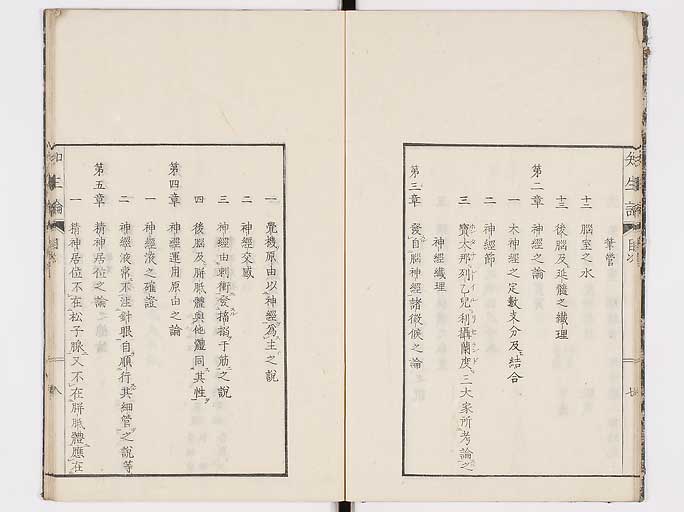 知生論 目次 七
筆管
十二 腦室之水
十三 後腦及延髓之纎理
第二章 神經之論
一 本神經之定數支分及結合
二 神經節
三 寶太那列乙兒利攝蘭度三大家所考論之
神經纎理
第三章 發自腦神經諸徴候之論
一 覺機原由以神經爲主之說
二 神經交感
三 神經由刺衝發搐搦于筋之說
四 後腦及胼胝體與他體同其性
第四章 神經運用原由之論
一 神經液之確證
二 神經液常不注針眼自順行其細管之說等
第五章 精神居位之論
一 精神居位不在松子腺又不在胼胝體應在
知生論 目次 八